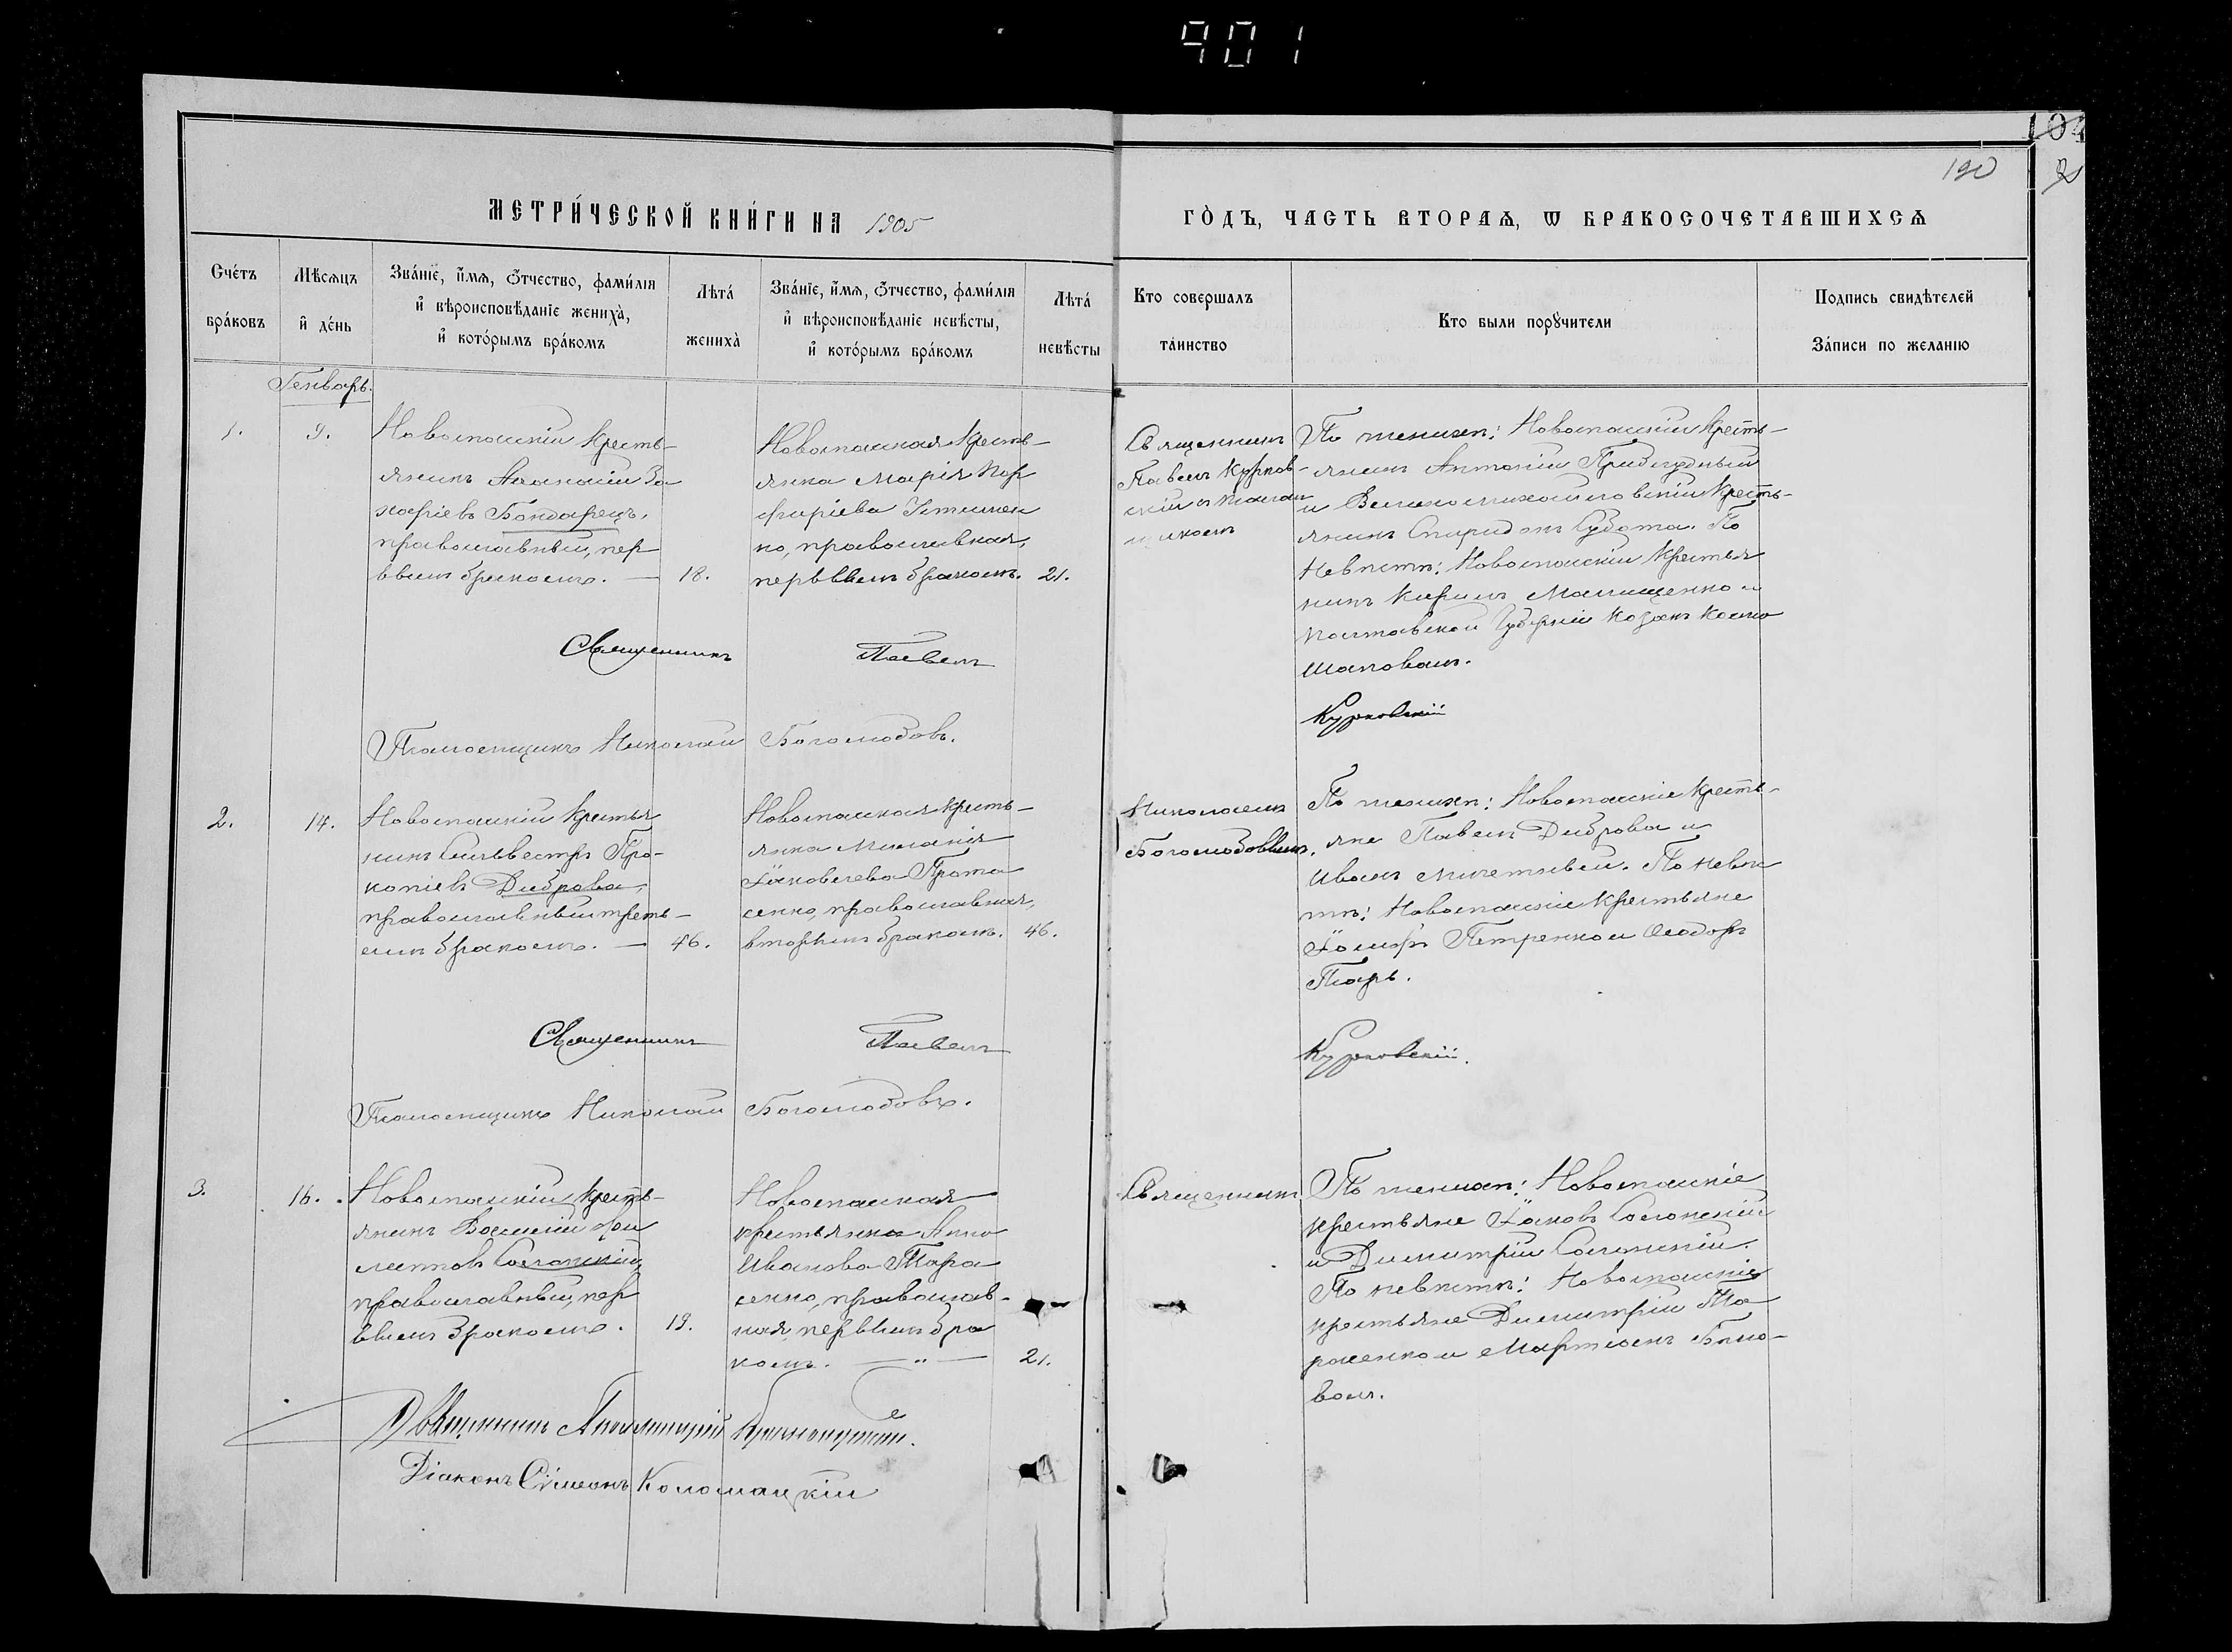 901
104
190
МЕТРИ́ЧЕСКОЙ КНИ́ГИ НА 1905
ГО́ДЪ, ЧАСТЬ ВТОРАѦ, Ѡ БРАКОСОЧЕТАВШИХСѦ
Сче́тъ
бра́ковъ
Мѣсѧцъ
и҆ де́нь
Зва́нїе, и҆́мѧ, ѻ҆́тчество, фами́лїѧ
и҆ вѣроисповѣ́данїе жениха̀,
и҆ кото́рымъ бра́комъ
Лѣта́
жениха̀
Зва́нїе, и҆́мѧ, ѻ҆́тчество, фами́лїѧ
и҆ вѣроисповѣ́данїе невѣ́сты,
и҆ кото́рымъ бра́комъ
Лѣта́
невѣ́сты
Кто совершалъ
та́инство
Кто были порꙋ́чители
Подпись свидѣ́телей
За́писи по желанїю
Генварь.
1.
9.
Новоспаскій кресть-
янинъ Аѳанасій За
харіевъ Бондарецъ,
православный, пер
вымъ бракомъ. —
18.
Новоспаская кресть-
янка Марія Пор
фиріева
но, православная,
первымъ бракомъ.
21.
Священникъ
Павелъ Курков-
скій
По женихѣ: Новоспаскій кресть-
янинъ Антоній Прибудный
и Великомихайловскій кресть-
янинъ Спиридонъ Субота. По
невѣстѣ: Новоспаскій крестья
нинъ Кирилъ Малищенко и
Полтавской губерніи козакъ Косма
Шаповалъ.
Священникъ Павелъ Курковскій
Псаломщикъ Николай Боголюбовъ.
2.
14.
Новоспаскій крестья
нинъ Сильвестръ Про-
копіевъ Диброва,
православный треть-
имъ бракомъ. —
46.
Новоспаская кресть-
янка Меланія
Іаковлева Прота
сенко, православная,
вторымъ бракомъ.
46.
Николаемъ
Боголюбовымъ.
По женихѣ: Новоспаскіе кресть-
яне Павелъ Диброва и
Иванъ По невѣс
тѣ: Новоспаскіе крестьяне
Іосифъ Петренко и Ѳеодоръ
Священникъ Павелъ Курковскій.
Псаломщикъ Николай Боголюбовъ.
3.
16.
Новоспаскій кресть-
янинъ Василій Фи
липповъ Солонскій,
православный, пер
вымъ бракомъ.
19.
Новоспаская
крестьянка Анна
Иванова Тара
сенко, православ-
ная, первымъ бра
комъ. — „ —
21.
Священникъ
По женихѣ: Новоспаскіе
крестьяне Іаковъ Солонскій
и Димитрій Солонскій.
По невѣстѣ: Новоспаскіе
крестьяне Димитрій Та
расенко и Мартіанъ Било-
волъ.
Священникъ
Діаконъ Сѵмеонъ Коломацкій